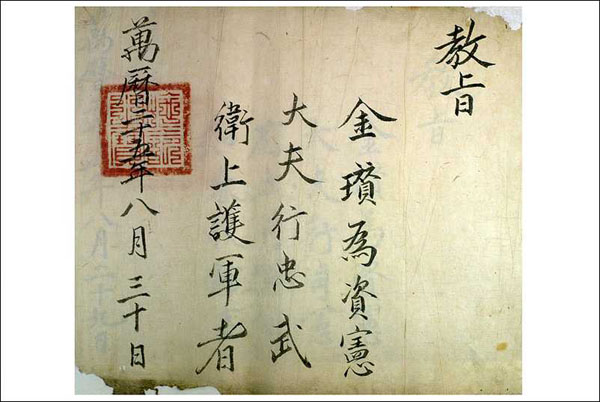 教旨
金瓚為資憲
大夫行忠武
衛上護軍者
萬曆二十五年八月三十日